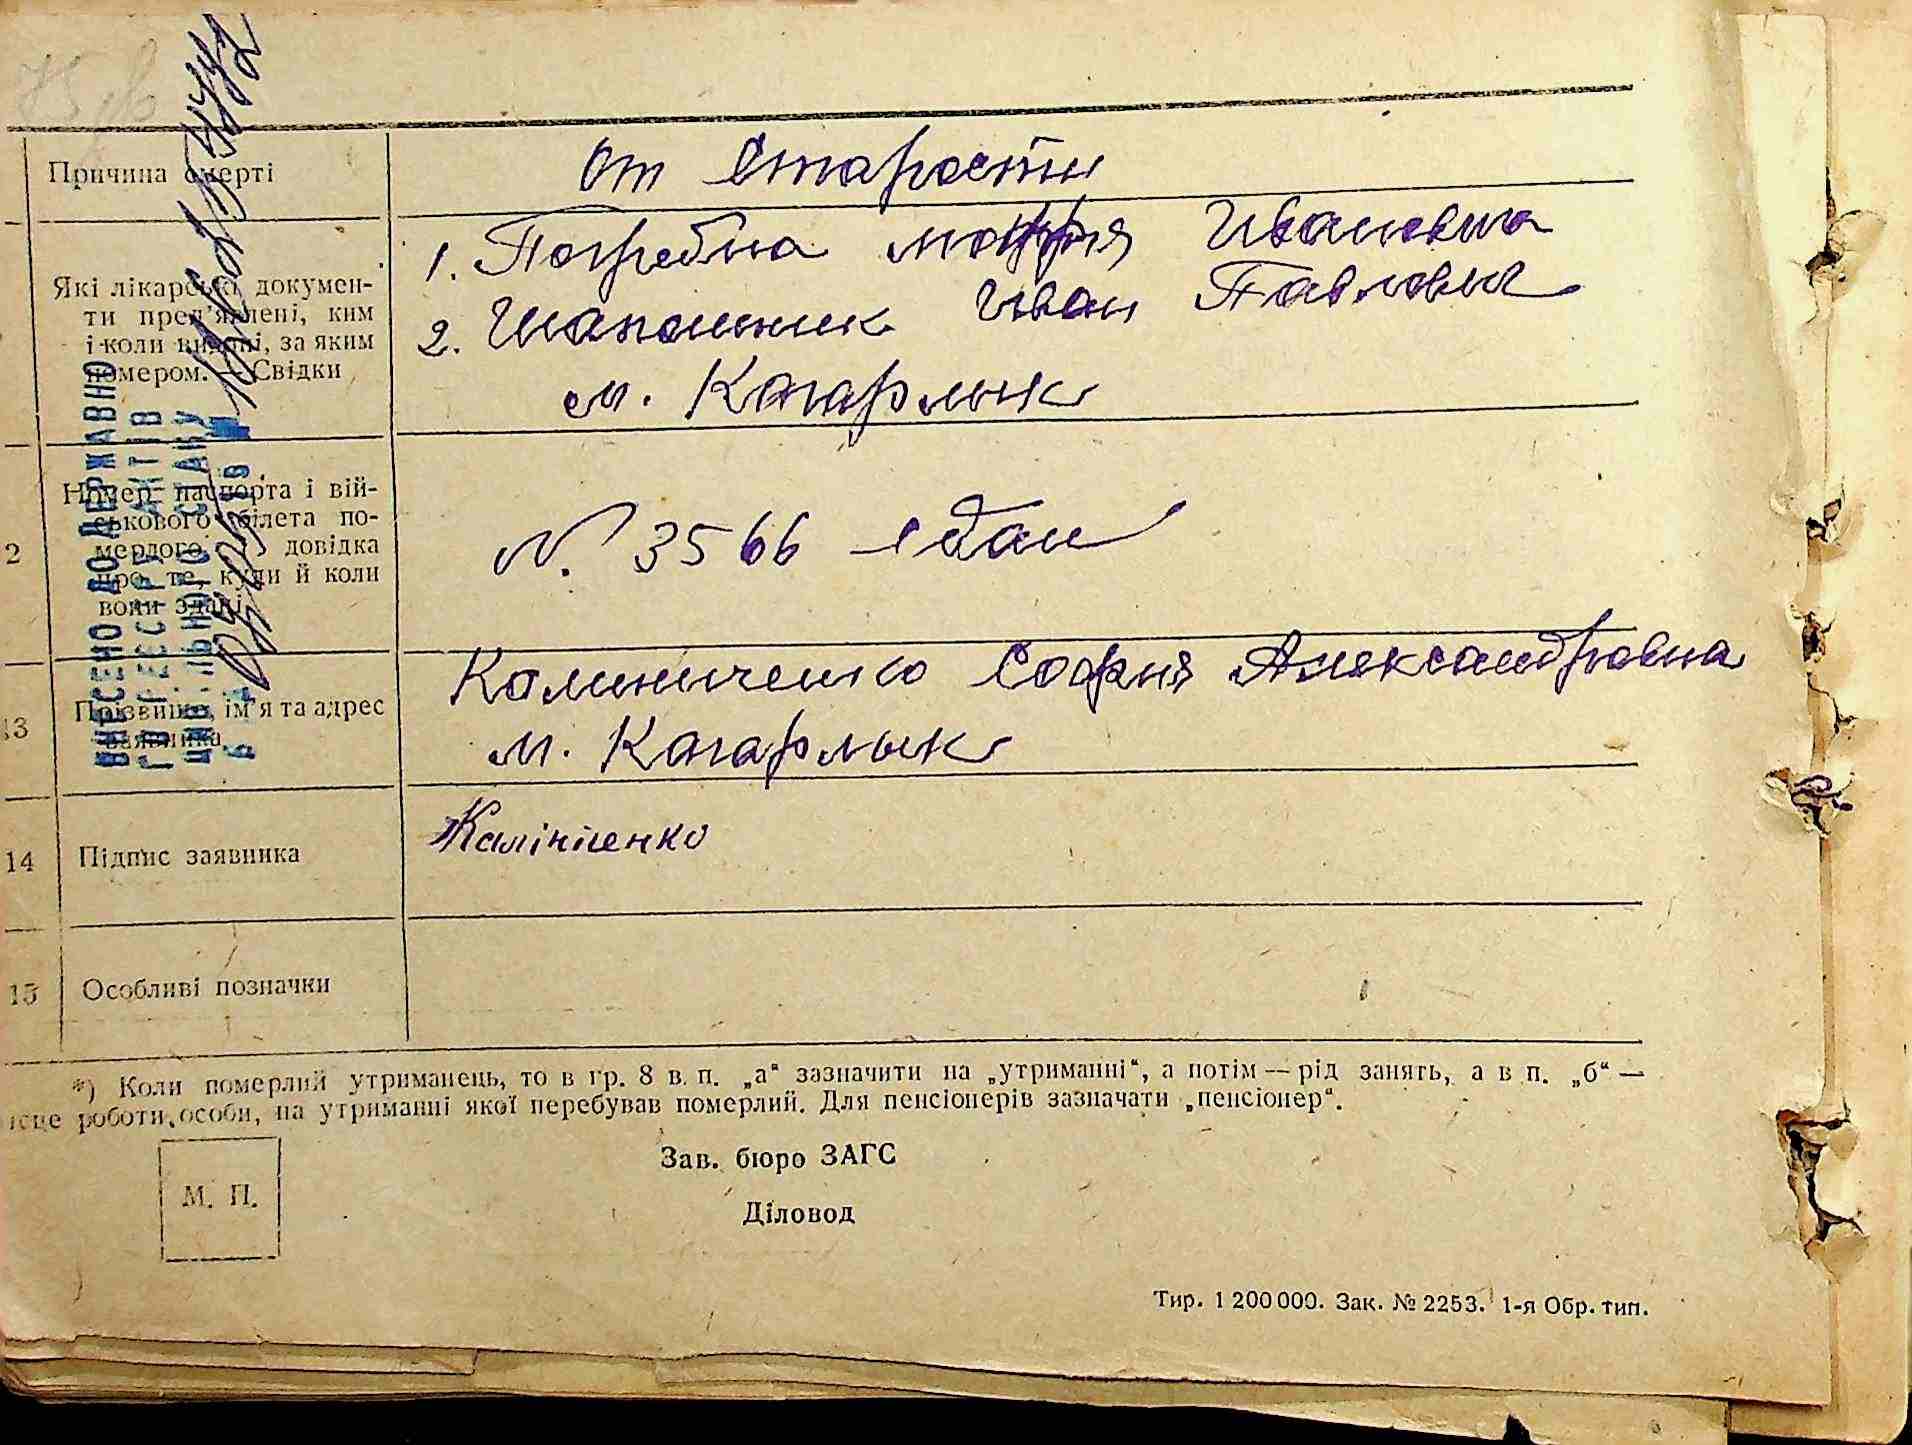 Причина смерті
От Старости
Які лікарські докумен-
ти пред'явлені, ким
і коли видані, за яким
номером. — Свідки
1. Погребна Мотря Ивановна
2. Шапошник Иван Павлович
м. Кагарлык
2
Номер паспорта і вій-
ськового білета по-
мерлого, і довідка
про те, куди й коли
вони здані
N. 3566 сдан
13
Прізвище, ім'я та адрес
заявника
Калиниченко София Александровна
м. Кагарлык
14
Підпис заявника
Калініченко
15
Особливі позначки
*) Коли померлий утриманець, то в гр. 8 в. п. „а“ зазначити на „утриманні“, а потім — рід занять, а в п. „б“ —
ісце роботи особи, на утриманні якої перебував померлий. Для пенсіонерів зазначати „пенсіонер“.
М. П.
Зав. бюро ЗАГС
Діловод
Тир. 1 200 000. Зак. № 2253. 1-я Обр. тип.
ВНЕСЕНО ДО ДЕРЖАВНО
ГО РЕЄСТРУ АКТІВ
ЦИВІЛЬНОГО СТАНУ